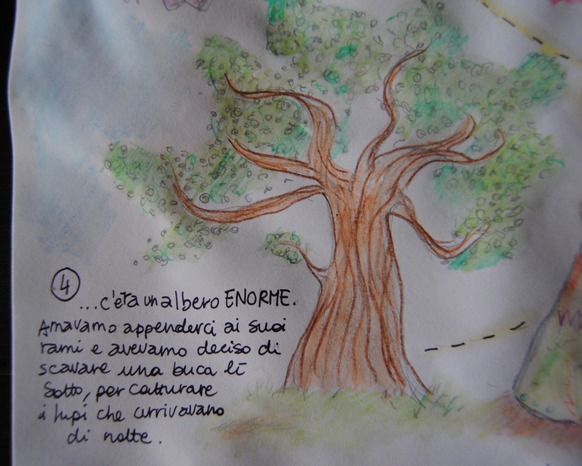 4
...c'era un albero ENORME.
Amavamo appenderci ai suoi
rami e avevamo deciso di
scavare una buca lì
sotto, per catturare
i lupi che arrivavano
di notte.